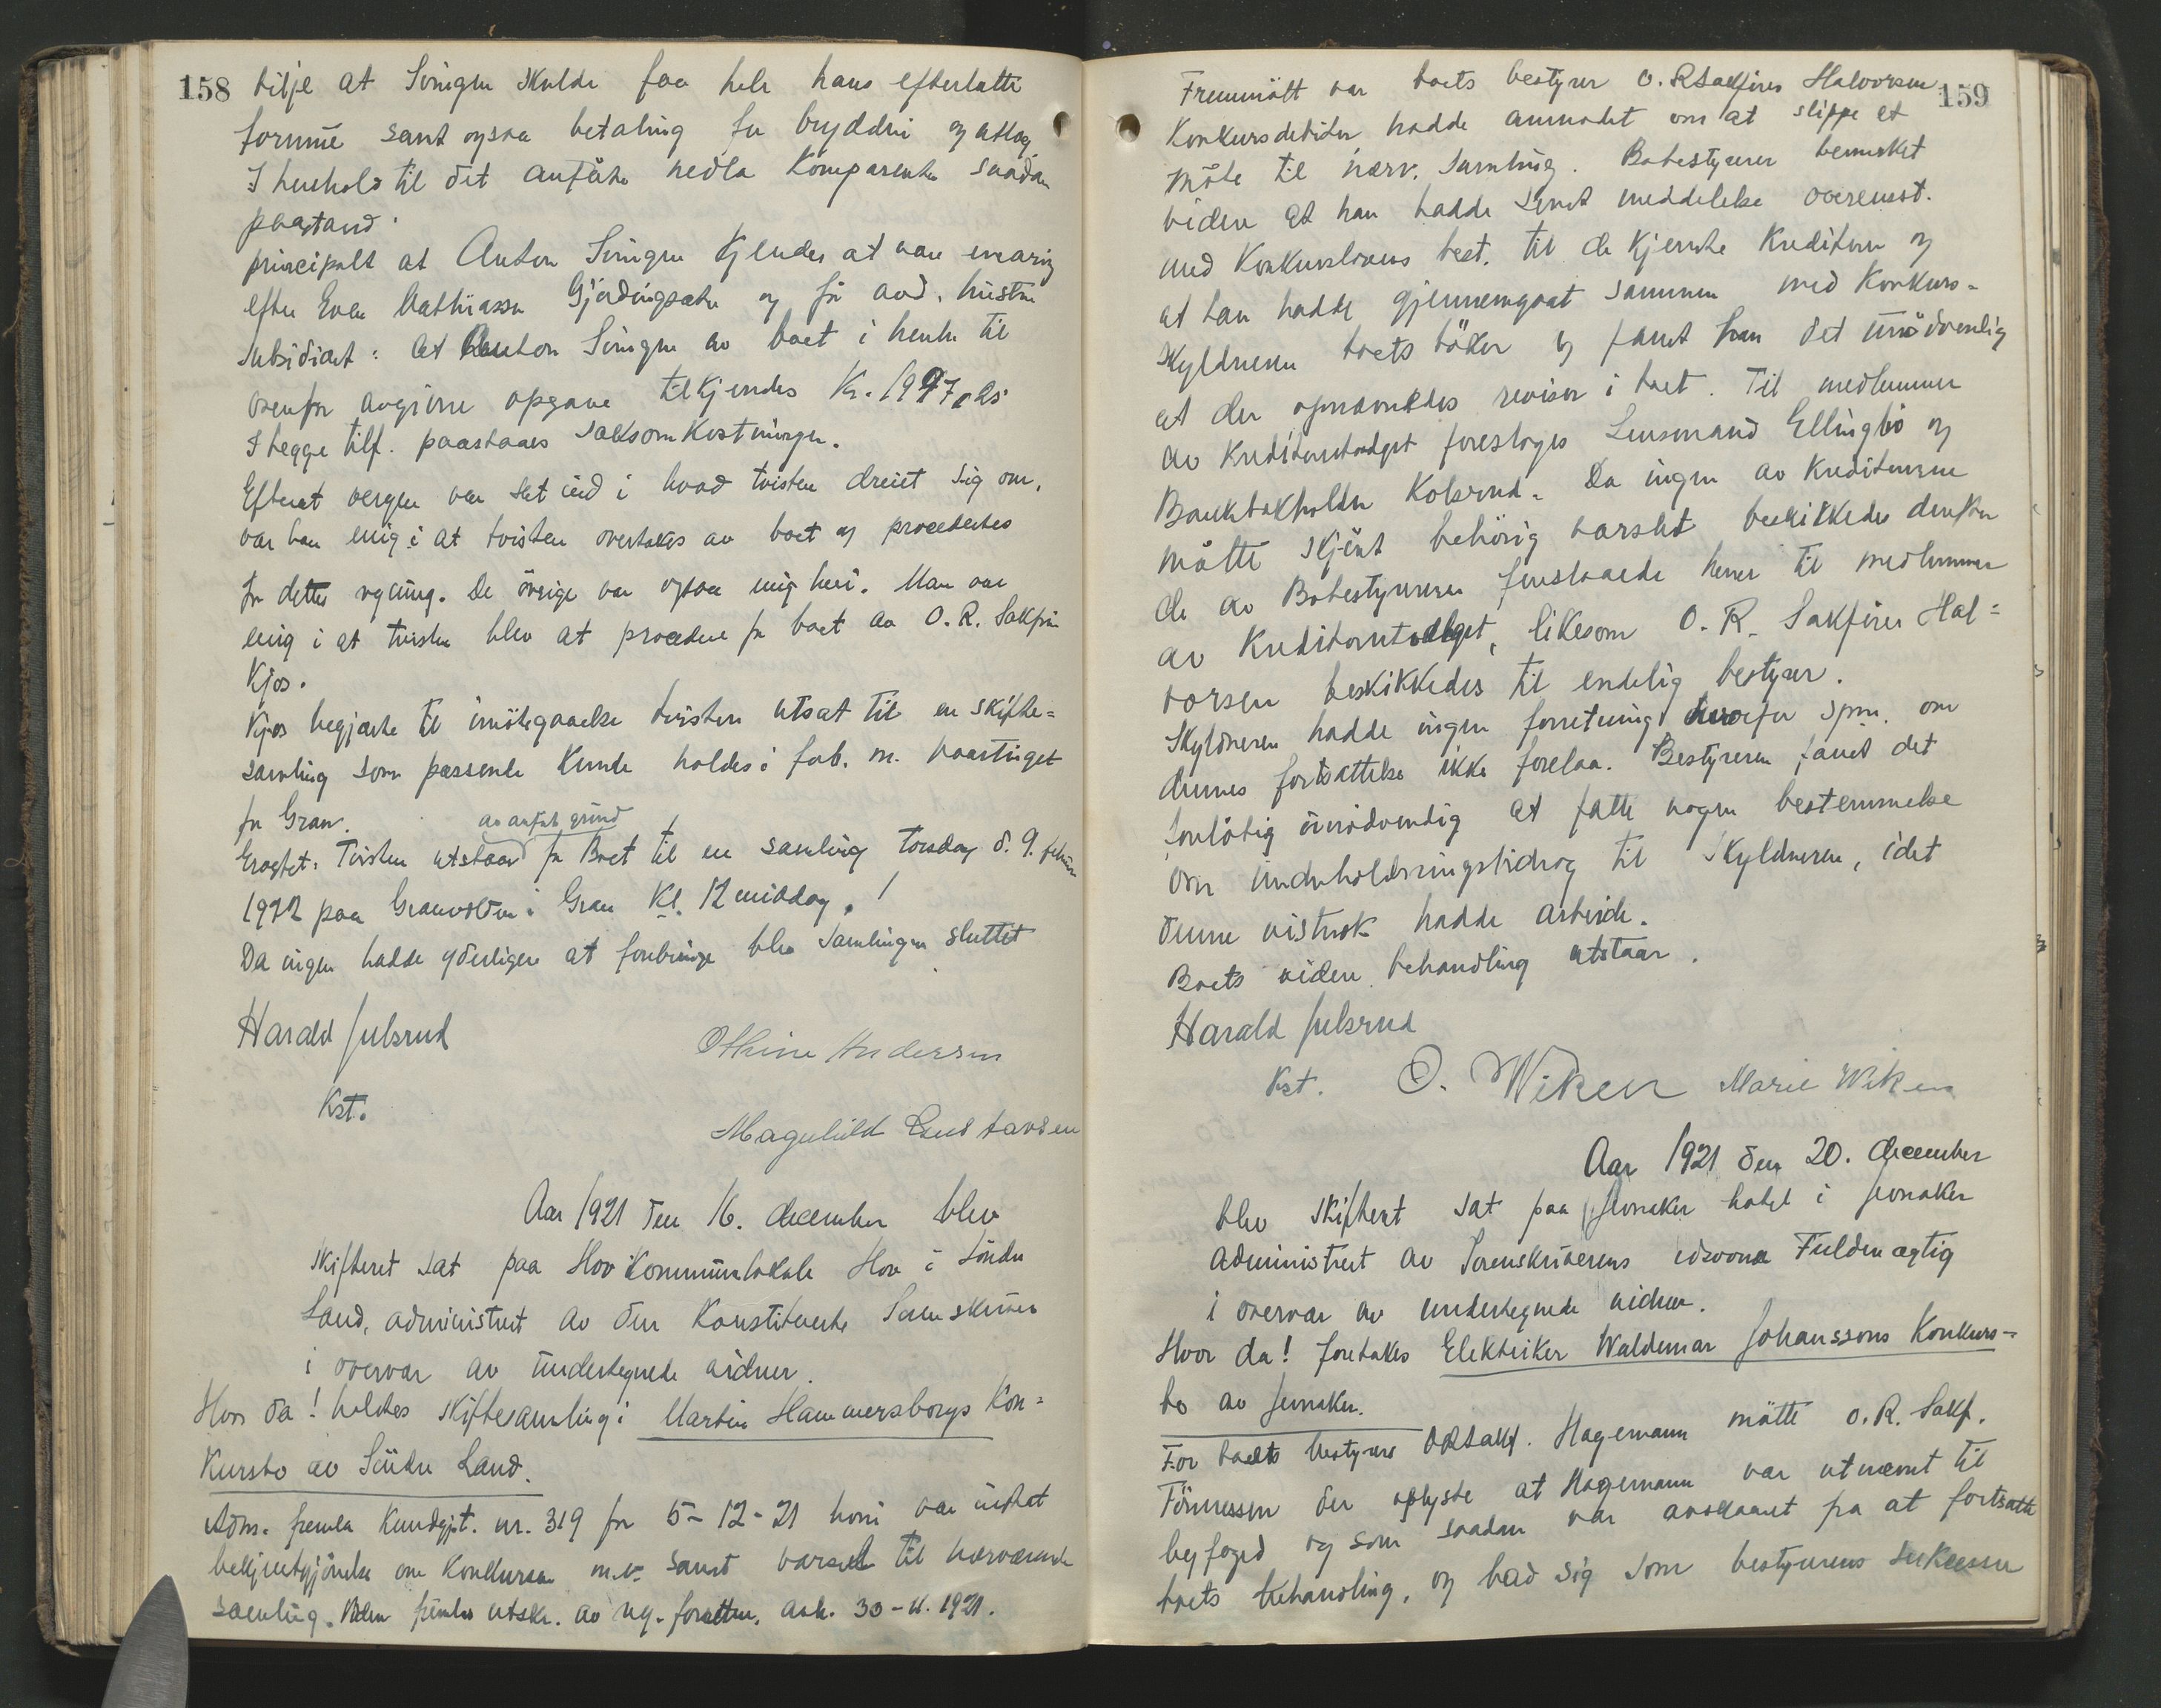 158
vilje at Svingen skulde faa hele hans efterlatte
formue samt ogsaa betaling for bryderi og utlæg
I henhold til det anførte nedla komparenten saadan
paastand:
principalt at Anton Svingen kjendes at være enearving
efter Even Mathiassen Gjerdingsæter og før avd. hustru
subsidiært: at Anton Svingen av boet i henh. til
ovenfor avgivne opgave tilkjendes Kr. 1997,25
I begge tilf. paastaaes saksomkostninger.
Efterat vergen var sat ind i hvad tvisten dreiet sig om,
var han enig i at tvisten overtokes av boet og procedertes
for dettes regning. De øvrige var ogsaa enig heri. Man var
enig i at tvisten blev at procedere for boet av O.R. Sakfører
Kjos.
Kjos begjærte til imøtegaaelse tvisten utsat til en skifte=
samling som passende kunde holdes i forb. m. vaartinget
for Gran.
av anført grund
Eragtet: Tvisten utstaar for Boet til en samling torsdag d. 9. februar
1922 paa Granvolden i Gran Kl. 12 middag. /
Da ingen hadde yderligere at forebringe blev samlingen sluttet
Harald Julsrud
Othine Andersen
Kst.
Magnhild Gustavsen
Aar 1921 den 16. december blev
skifteret sat paa Hov Kommunelokale Hov i Søndre
Land, administrert av den konstituerte Sorenskriver
i overvær av undertegnede vidner.
Hvor da! holdtes skiftesamling i Martin Hammersborgs Kon=
kursbo av Søndre Land.
Adm. fremla Kundgjt. nr. 319 for 5-12-21 hvori var indtat
bekjentgjørelse om konkursen m.v. samt varsel til nærværende
samling. Viden fremlas utskr. av reg. forretn. avh. 30-11.1921.
159
Fremmøtt var boets bestyrer O.R.Sakfører Halvorsen
Konkursdebitor hadde anmodet om at slippe at
møte til nærv. samling. Bobestyrer bemerket
videre at han hadde sendt meddelelse overenst.
med Konkurslovens best. til de kjendte kreditorer og
at han hadde gjennemgaat sammen med Konkurs-
skyldneren boets bøker og fandt han det unødvendig
at der opnævnedes revisor i boet. Til medlemmer
av Kreditorutvalget foresloges Lensmand Ellingbø og
Bankbokholder Kolsrud. Da ingen av Kreditorerne
møtte skjønt behørig varslet beskikkedes derfor
de av Bobestyreren foreslaaede herrer til medlemmer
av Kreditorutvalget, likesom O.R. Sakfører Hal=
vorsen beskikkedes til endelig bestyrer.
Skyldneren hadde ingen forretning hvorfor spm. om
dennes fortsættelse ikke forelaa. Bestyreren fandt det
foreløbig unødvendig at fatte nogen bestemmelse
om underholdningsbidrag til skyldneren, idet
denne vistnok hadde arbeide.
Boets videre behandling utstaar.
Harald Julsrud
Kst. O. Wiken Marie Wiken
Aar 1921 den 20. december
blev skifteret sat paa Jevnaker hotel i Jevnaker
administrert av Sorenskriverens edsvorne Fuldmægtig
i overvær av undertegnede vidner.
Hvor da! foretokes Elektriker Waldemar Johanssons Konkurs-
bo av Jevnaker.
For boets bestyrer ORSakf. Hagemann møtte O.R. Sakf.
Tønnessen der oplyste at Hagemann var utnævnt til
byfoged og som saadan var avskaaret fra at fortsætte
boets behandling, og bad sig som bestyrerens